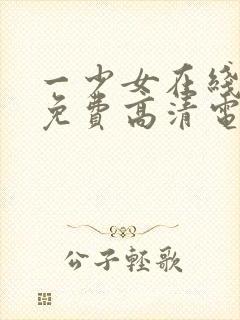 一少女在线
免费高清电
公子轻歌